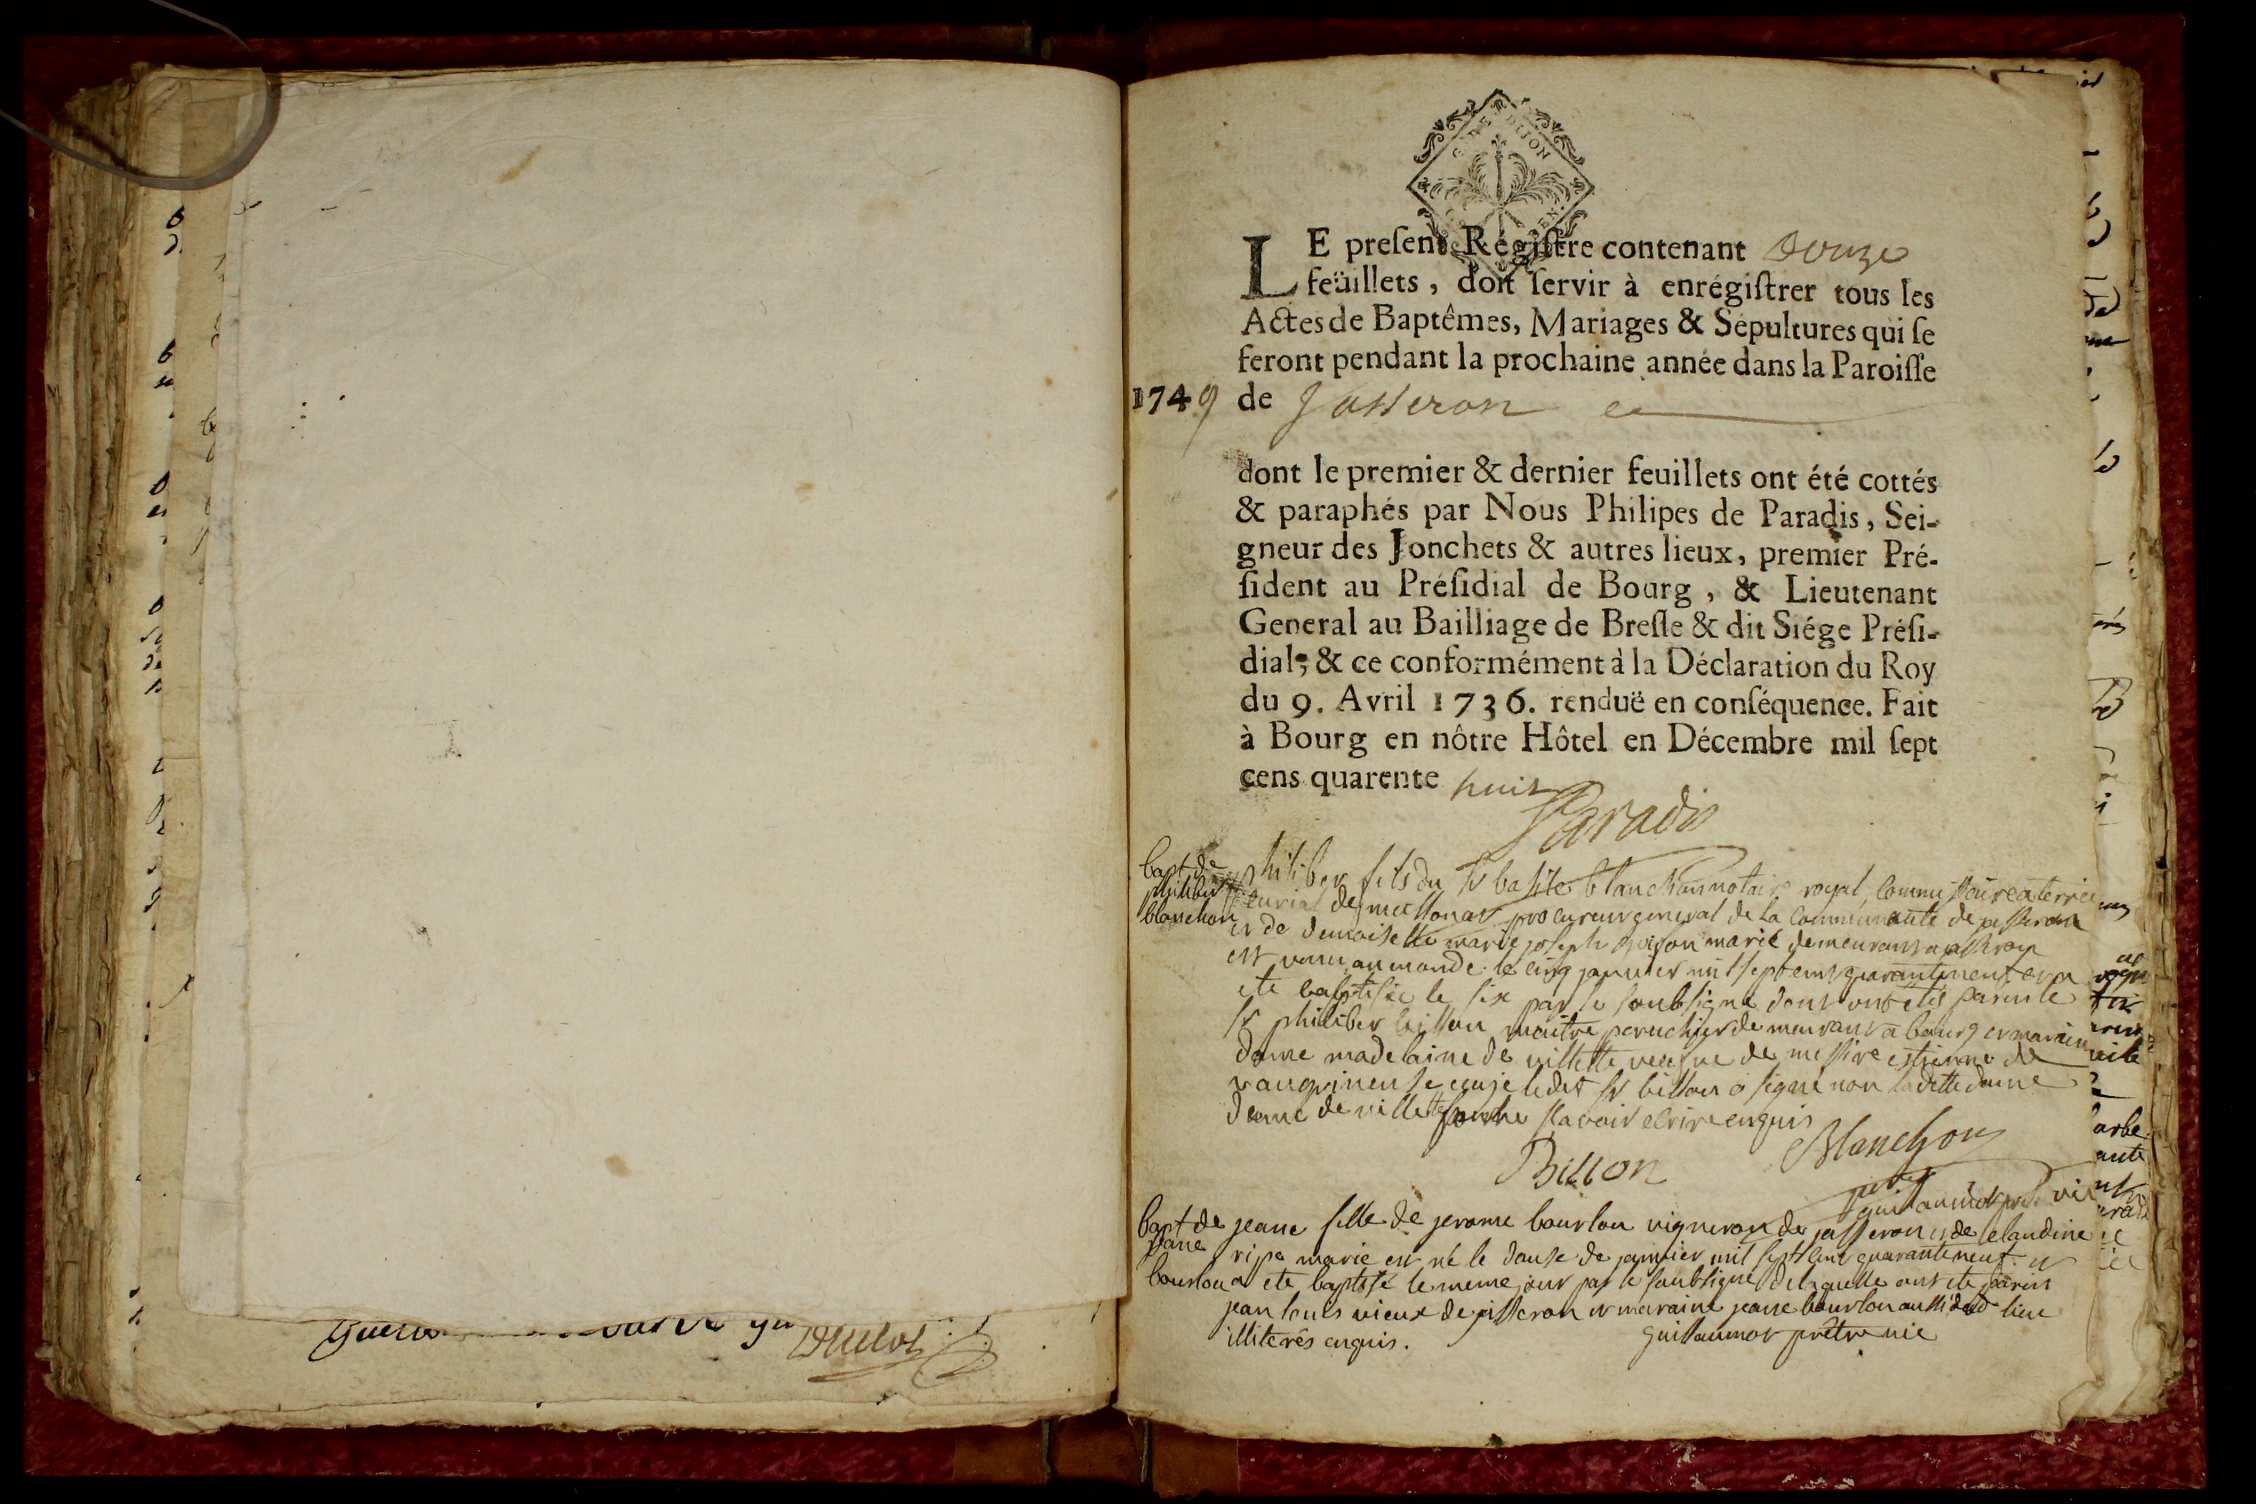 GEN. DE DIJON
LE preſent Régiſtre contenant douze
feüillets, doit ſervir à enrégiſtrer tous les
Actes de Baptêmes, Mariages & Sépultures qui ſe
feront pendant la prochaine année dans la Paroiſſe
1749 de Jasseron
dont le premier & dernier feuillets ont été cottés
& paraphés par Nous Philipes de Paradis, Sei-
gneur des Jonchets & autres lieux, premier Pré-
ſident au Préſidial de Bourg, & Lieutenant
General au Bailliage de Breſſe & dit Siége Préſi-
dial; & ce conformément à la Déclaration du Roy
du 9. Avril 1736. renduë en conſéquence. Fait
à Bourg en nôtre Hôtel en Décembre mil ſept
cens quarente huit
Paradis
bapt de
philiber
blanchon
philiber fils du Sr basile blanchon notaire royal, commissaire a terrier
curial de meillonas procureur general de la communauté de jasseron
et de demoiselle marie joseph marié demeurants a jasseron
est venu au monde le cinq janvier mil sept cent quarante neuf et a
ete baptisée le six par le soubsigné dont ont étés parin le
Sr philiber billon maitre peruchier demeurant a bourg et maraine
dame madelaine de villette veufve de messire estienne de
ledit Sr billon a signé non laditte dame
dame de villette scavoir ecrire enquis
Billon
Blanchon
guillaumot prêtre vic
bapt de
jeane
bourlou
jeane fille de jerome bourlou vigneron de jasseron et de claudine
ripe marié est né le douse de janvier mil sept cent quarante neuf et
a ete baptisé le meme jour par le soubsigné de laquelle ont ete parin
jean louis vieux de jasseron et maraine jeane bourlou aussi dud lieu
illiterés enquis.
guillaumot prêtre vic